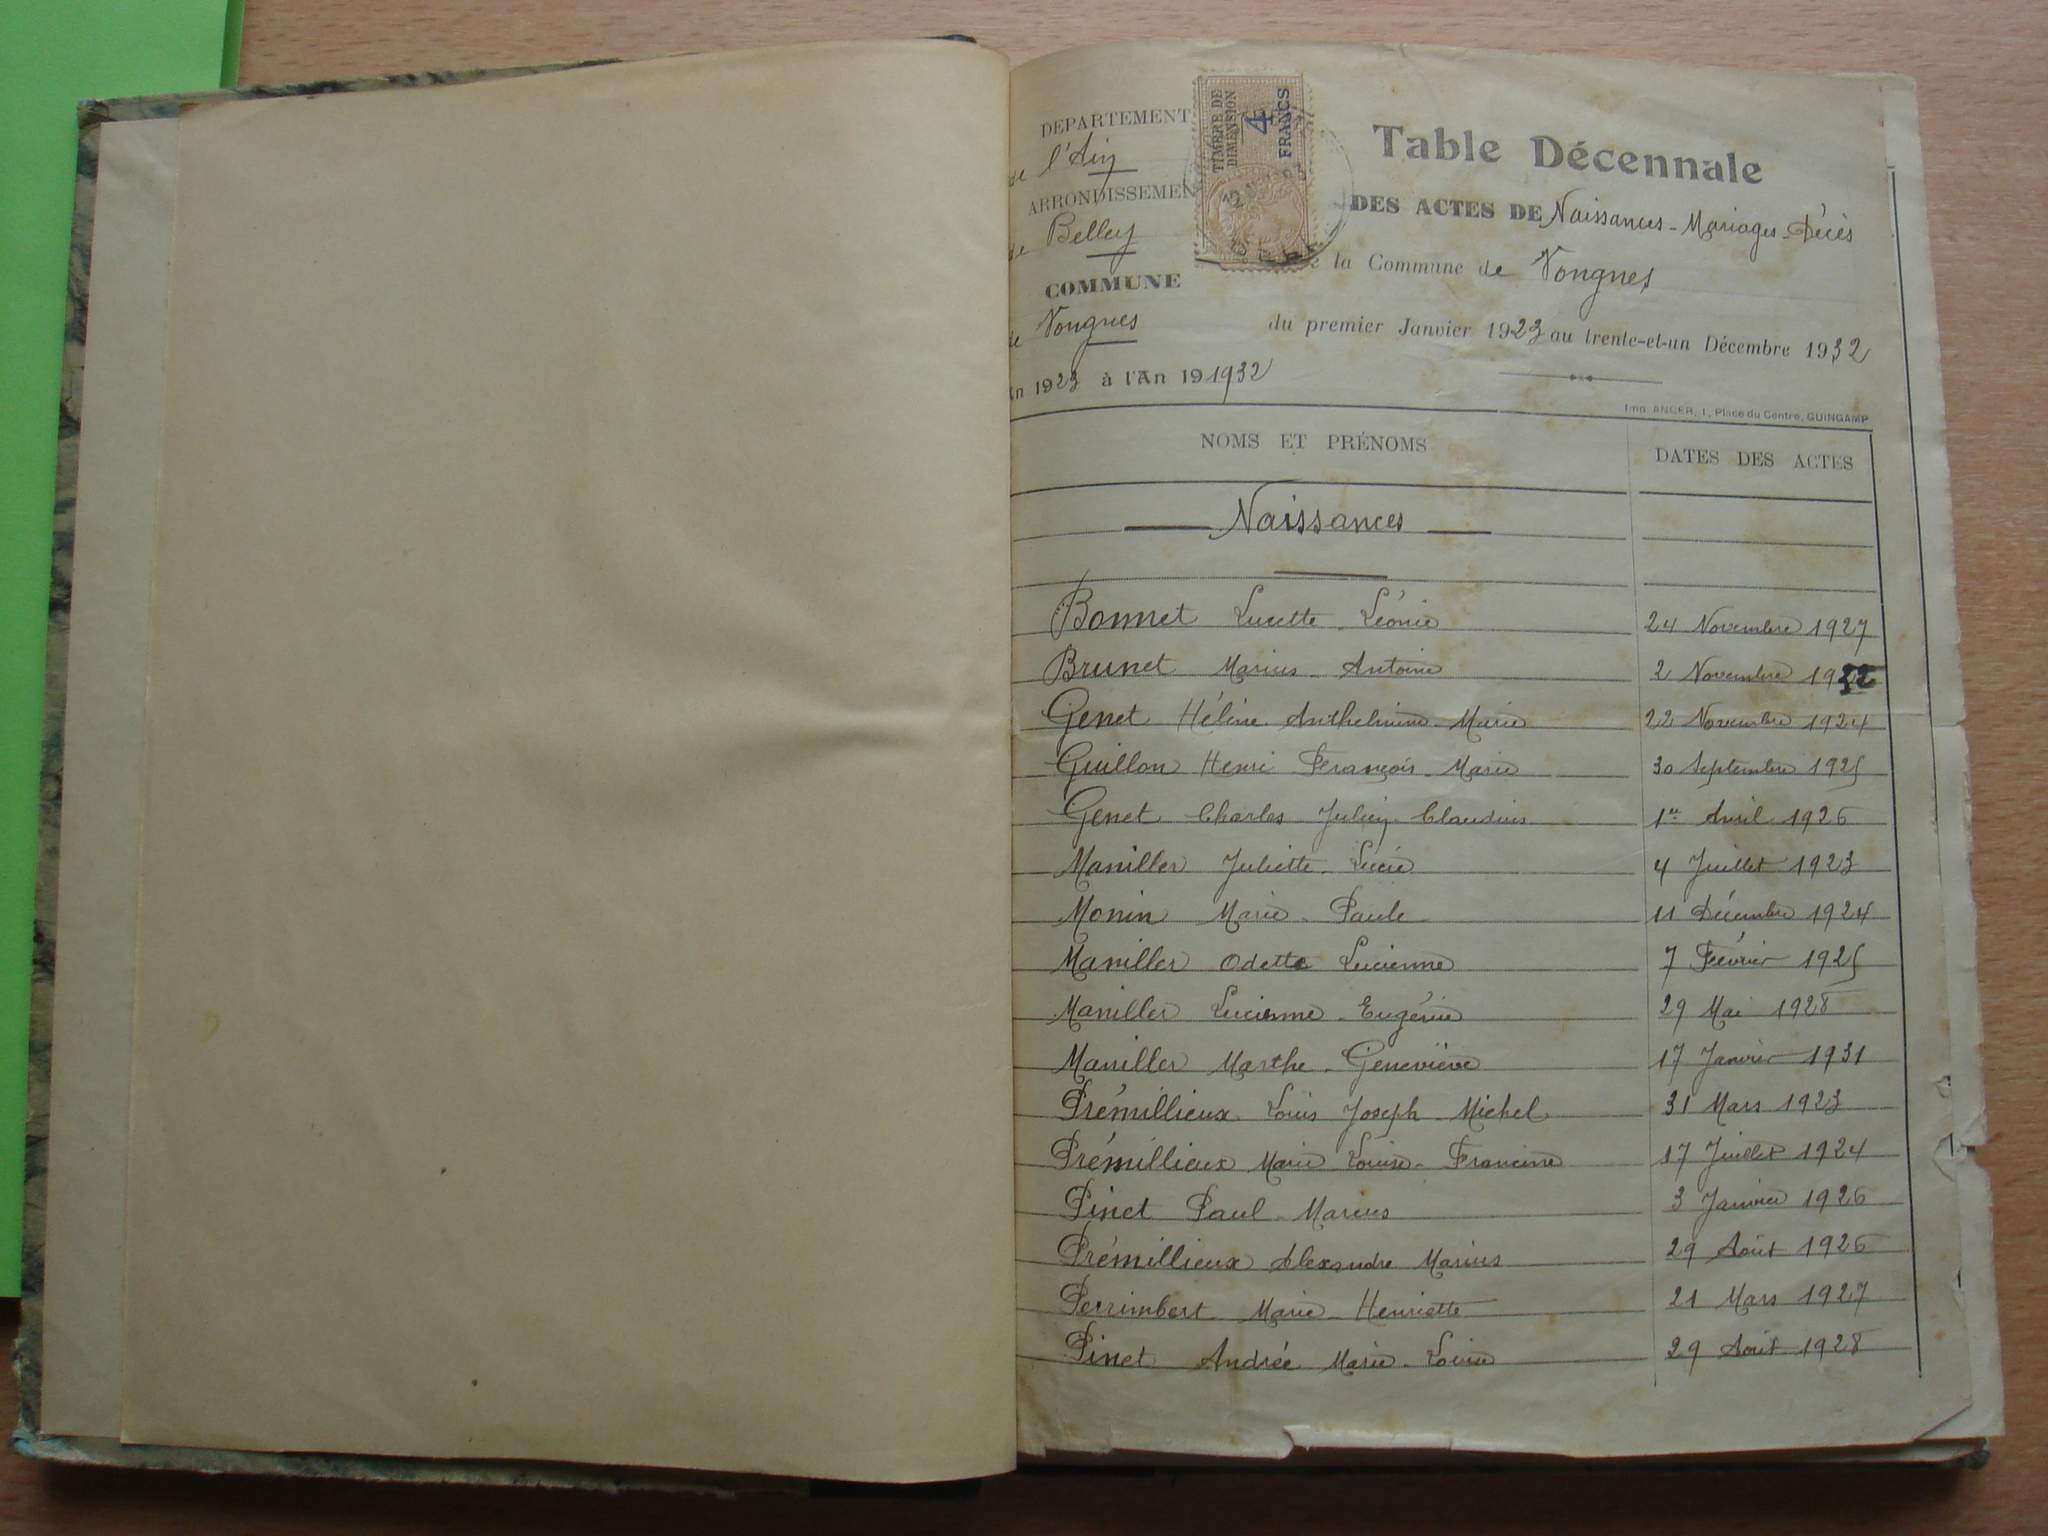 DEPARTEMENT
de l'Ain
ARRONDISSEMEN
de Belley
COMMUNE
de Vongnes
An 1923 à l'An 19 1932
TIMBRE DE
DIMENSION
4
FRANCS
Table Décennale
DES ACTES DE Naissances - Mariages - Décès
de la Commune de Vongnes
du premier Janvier 1923 au trente-et-un Décembre 1932
Imp. ANGER, 1, Place du Centre, GUINGAMP
NOMS ET PRÉNOMS DATES DES ACTES
Naissances
Bonnet Lucette Léonie 24 Novembre 1927
Brunet Marius Antoine 2 Novembre 1932
Genet Hélène Anthelmine Marie 22 Novembre 1924
Guillon Henri François Marie 30 Septembre 1925
Genet Charles Julien Claudius 1er Avril 1926
Maniller Juliette Lucie 4 Juillet 1923
Monin Marie Paule 11 Décembre 1924
Maniller Odette Lucienne 7 Février 1925
Maniller Lucienne Eugénie 29 Mai 1928
Maniller Marthe Geneviève 17 Janvier 1931
Prémillieux Louis Joseph Michel 31 Mars 1923
Prémillieux Marie Louise Francine 17 Juillet 1924
Pinet Paul Marius 3 Janvier 1926
Prémillieux Alexandre Marius 29 Août 1926
Perrimbert Marie Henriette 21 Mars 1927
Pinet Andrée Marie Louise 29 Août 1928